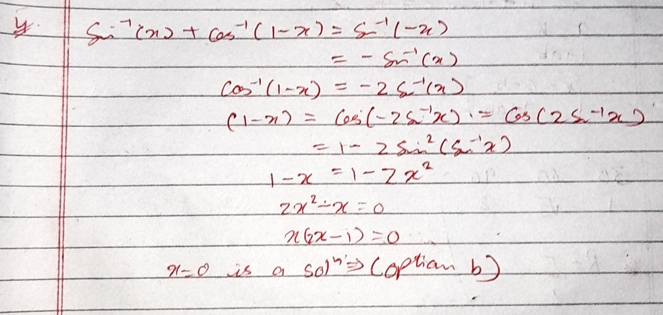 4. Sin⁻¹(x) + cos⁻¹(1-x) = Sin⁻¹(-x)
= - Sin⁻¹(x)
Cos⁻¹(1-x) = -2 Sin⁻¹(x)
(1-x) = Cos(-2 Sin⁻¹x) = Cos(2 Sin⁻¹x)
= 1 - 2 Sin²(Sin⁻¹x)
1-x = 1 - 2x²
2x² - x = 0
x(2x-1) = 0
x=0 is a solⁿ ⇒ (option b)